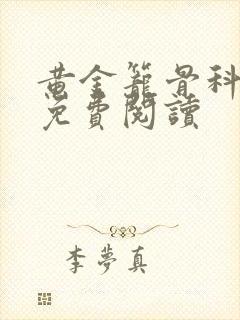 黄金籠骨科
免費閱讀
李夢真